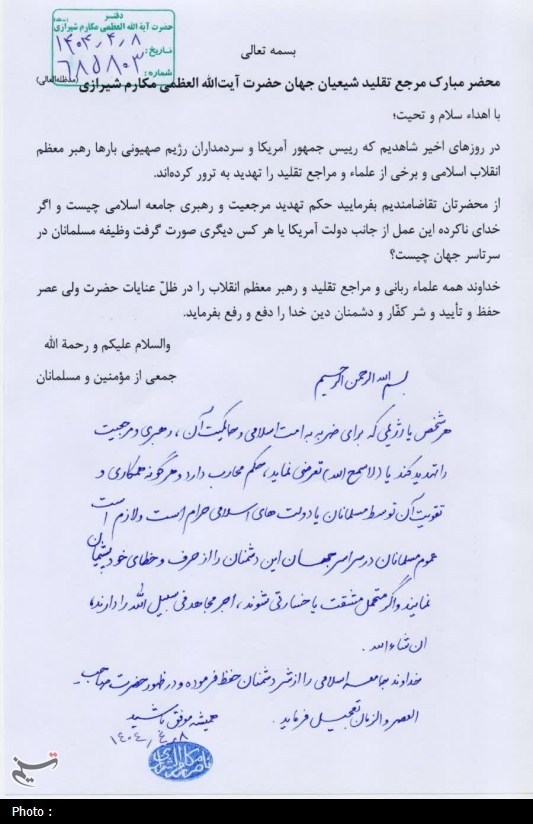 دفتر
حضرت آیة الله العظمی مکارم شیرازی (مدظله)
تاریخ: ۱۴۰۴/۴/۸
شماره: ۶۸۵۸۰۳
بسمه تعالی
محضر مبارک مرجع تقلید شیعیان جهان حضرت آیت‌الله العظمی مکارم شیرازی (مدظله‌العالی)
با اهداء سلام و تحیت؛
در روزهای اخیر شاهدیم که رییس جمهور آمریکا و سردمداران رژیم صهیونی بارها رهبر معظم
انقلاب اسلامی و برخی از علماء و مراجع تقلید را تهدید به ترور کرده‌اند.
از محضرتان تقاضامندیم بفرمایید حکم تهدید مرجعیت و رهبری جامعه اسلامی چیست و اگر
خدای ناکرده این عمل از جانب دولت آمریکا یا هر کس دیگری صورت گرفت وظیفه مسلمانان در
سرتاسر جهان چیست؟
خداوند همه علماء ربانی و مراجع تقلید و رهبر معظم انقلاب را در ظلّ عنایات حضرت ولی عصر
حفظ و تأیید و شر کفّار و دشمنان دین خدا را دفع و رفع بفرماید.
والسلام علیکم و رحمة الله
جمعی از مؤمنین و مسلمانان
بسم الله الرحمن الرحیم
هر شخص یا رژیمی که برای ضربه به امت اسلامی و حاکمیت آن، رهبری و مرجعیت
را تهدید کند یا (لاسمح الله) تعرضی نماید، حکم محارب دارد و هرگونه همکاری و
تقویت آن توسط مسلمانان یا دولت های اسلامی حرام است و لازم است
عموم مسلمانان در سراسر جهان این دشمنان را از حرف و خطای خود پشیمان
نمایند و اگر متحمل مشقت یا خسارتی شوند، اجر مجاهد فی سبیل الله را دارند،
ان شاء الله.
خداوند جامعه اسلامی را از شر دشمنان حفظ فرموده و در ظهور حضرت صاحب
العصر و الزمان تعجیل فرماید.
همیشه موفق باشید
۱۴۰۴/۴/۸
تسنیم
Photo :